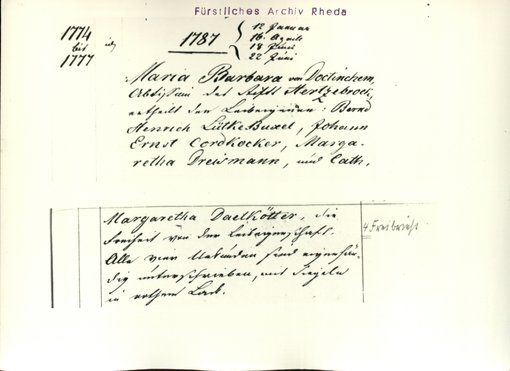 Fürstliches Archiv Rheda
1774
bis
1777
1787
12 Januar
16 Aprill
18 Juni
22 Juni
Maria Barbara von Doetinchem,
Abtissin des Stifts Hertzebrock,
ertheilt den Leibeigenen: Bernd
Henrich Lütke Buxel, Johann
Ernst Cordkocker, Marga-
retha Dreismann, und Cath.
Margaretha Daelkötter, die
Freiheit von der Leibeigenschaft.
Alle vier Urkunden sind eigenhän-
dig unterschrieben, mit Siegeln
in rothem Lack.
4 Freibriefe